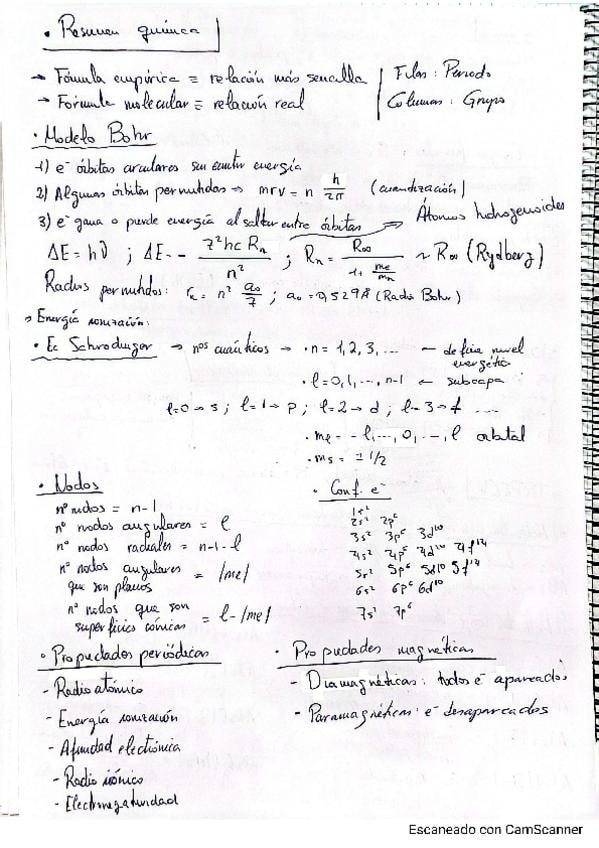 • Resumen química
→ Fórmula empírica ≡ relación más sencilla
→ Fórmula molecular ≡ relación real
Filas : Periodo
Columnas : Grupo
• Modelo Bohr
1) e⁻ órbitas circulares sin emitir energía
2) Algunas órbitas permitidas → mrv = n h/2π (cuantización)
3) e⁻ gana o pierde energía al saltar entre órbitas → Átomos hidrogenoides
ΔE = hν ; ΔE = - Z²hc Rn / n² ; Rn = R∞ / 1+ me/mn ~ R∞ (Rydberg)
Radios permitidos: rn = n² a₀/Z ; a₀ = 0,529Å (Radio Bohr)
→ Energía ionización:
• Ec Schrodinger → nºs cuánticos → · n = 1, 2, 3, ... — define nivel energético
· l = 0, 1, ..., n-1 ← subcapa
l=0 → s ; l=1 → p ; l=2 → d ; l=3 → f ....
· ml = -l, ..., 0, ..., l orbital
· ms = ± 1/2
• Nodos
nº nodos = n-1
nº nodos angulares = l
nº nodos radiales = n-1-l
nº nodos angulares que son planos = |ml|
nº nodos que son superficies cónicas = l-|ml|
• Conf. e⁻
1s²
2s² 2p⁶
3s² 3p⁶ 3d¹⁰
4s² 4p⁶ 4d¹⁰ 4f¹⁴
5s² 5p⁶ 5d¹⁰ 5f¹⁴
6s² 6p⁶ 6d¹⁰
7s² 7p⁶
• Propiedades periódicas
- Radio atómico
- Energía ionización
- Afinidad electrónica
- Radio iónico
- Electronegatividad
• Propiedades magnéticas
- Diamagnéticas : todos e⁻ apareados
- Paramagnéticas : e⁻ desapareados
Escaneado con CamScanner